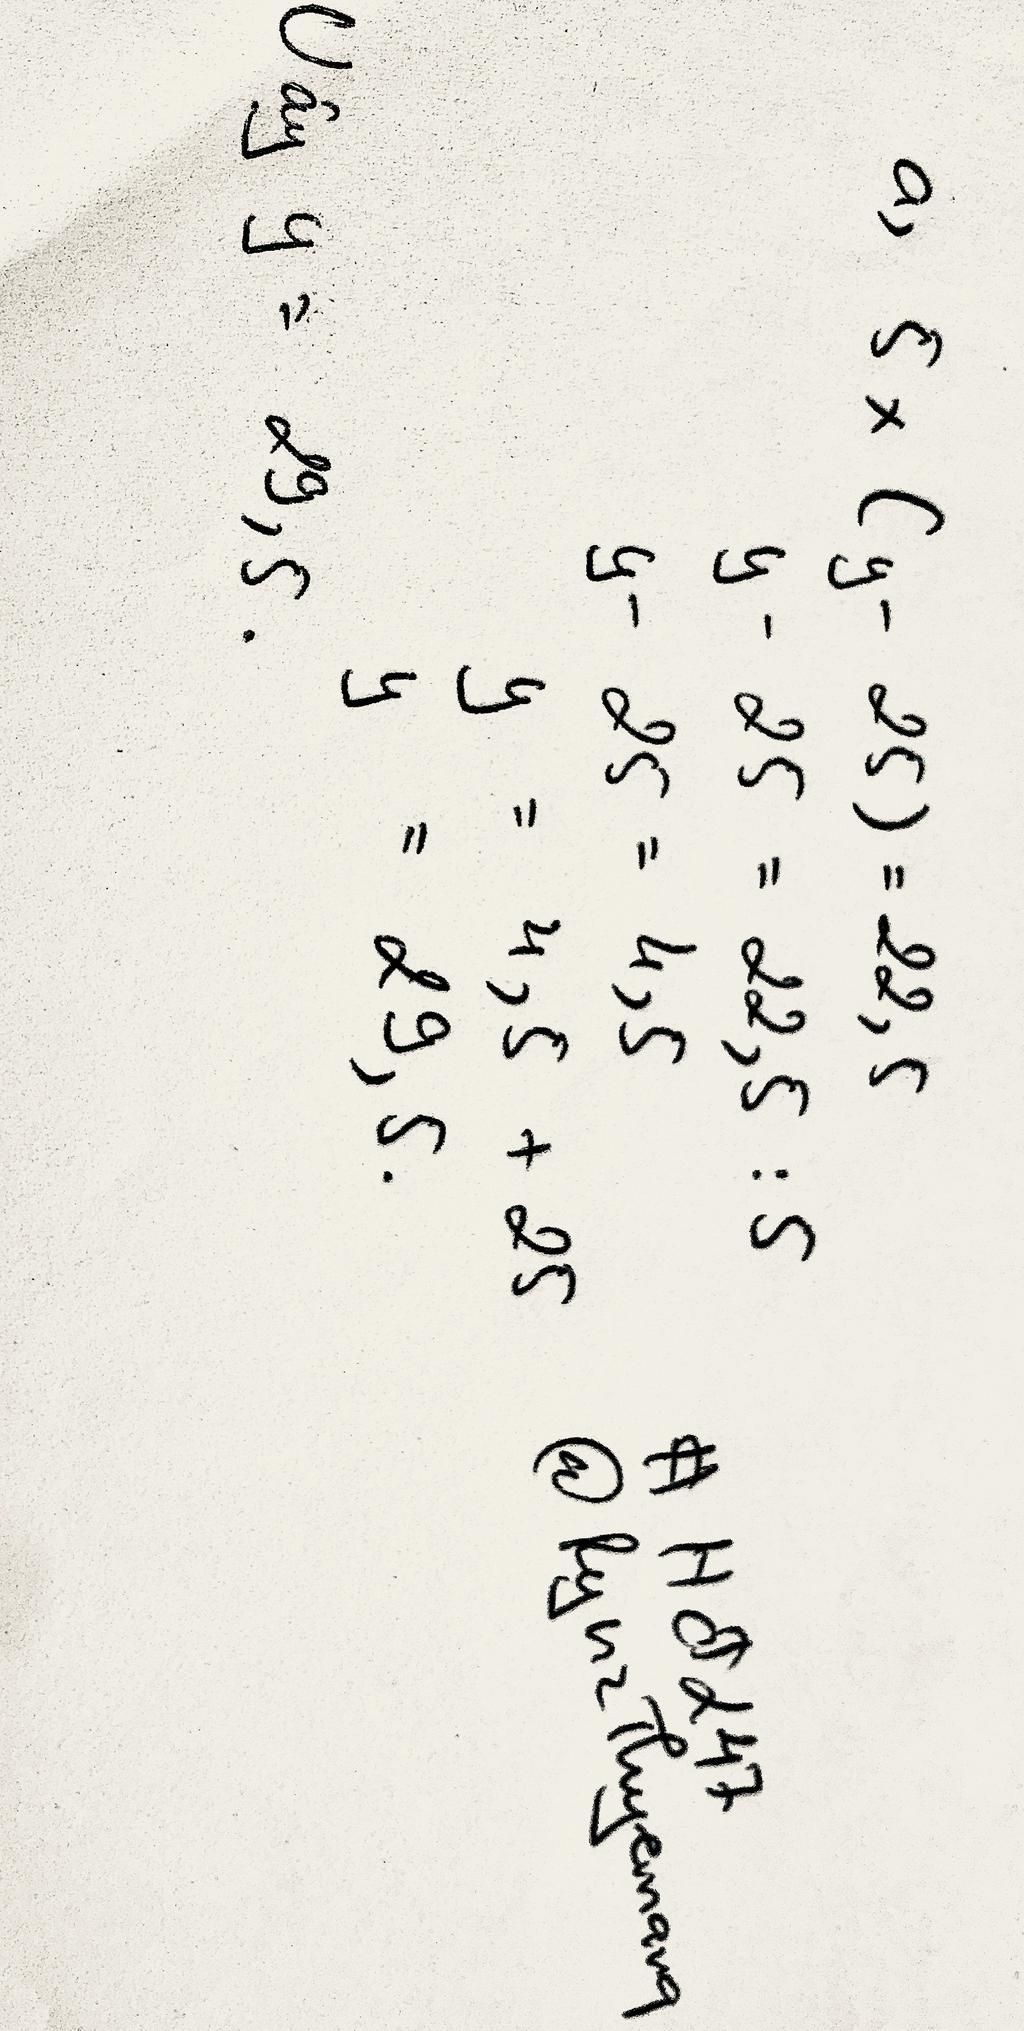 a, 5 x (y - 25) = 22,5
y - 25 = 22,5 : 5
y - 25 = 4,5
y = 4,5 + 25
y = 29,5.
Vậy y = 29,5.
# Hỏi247